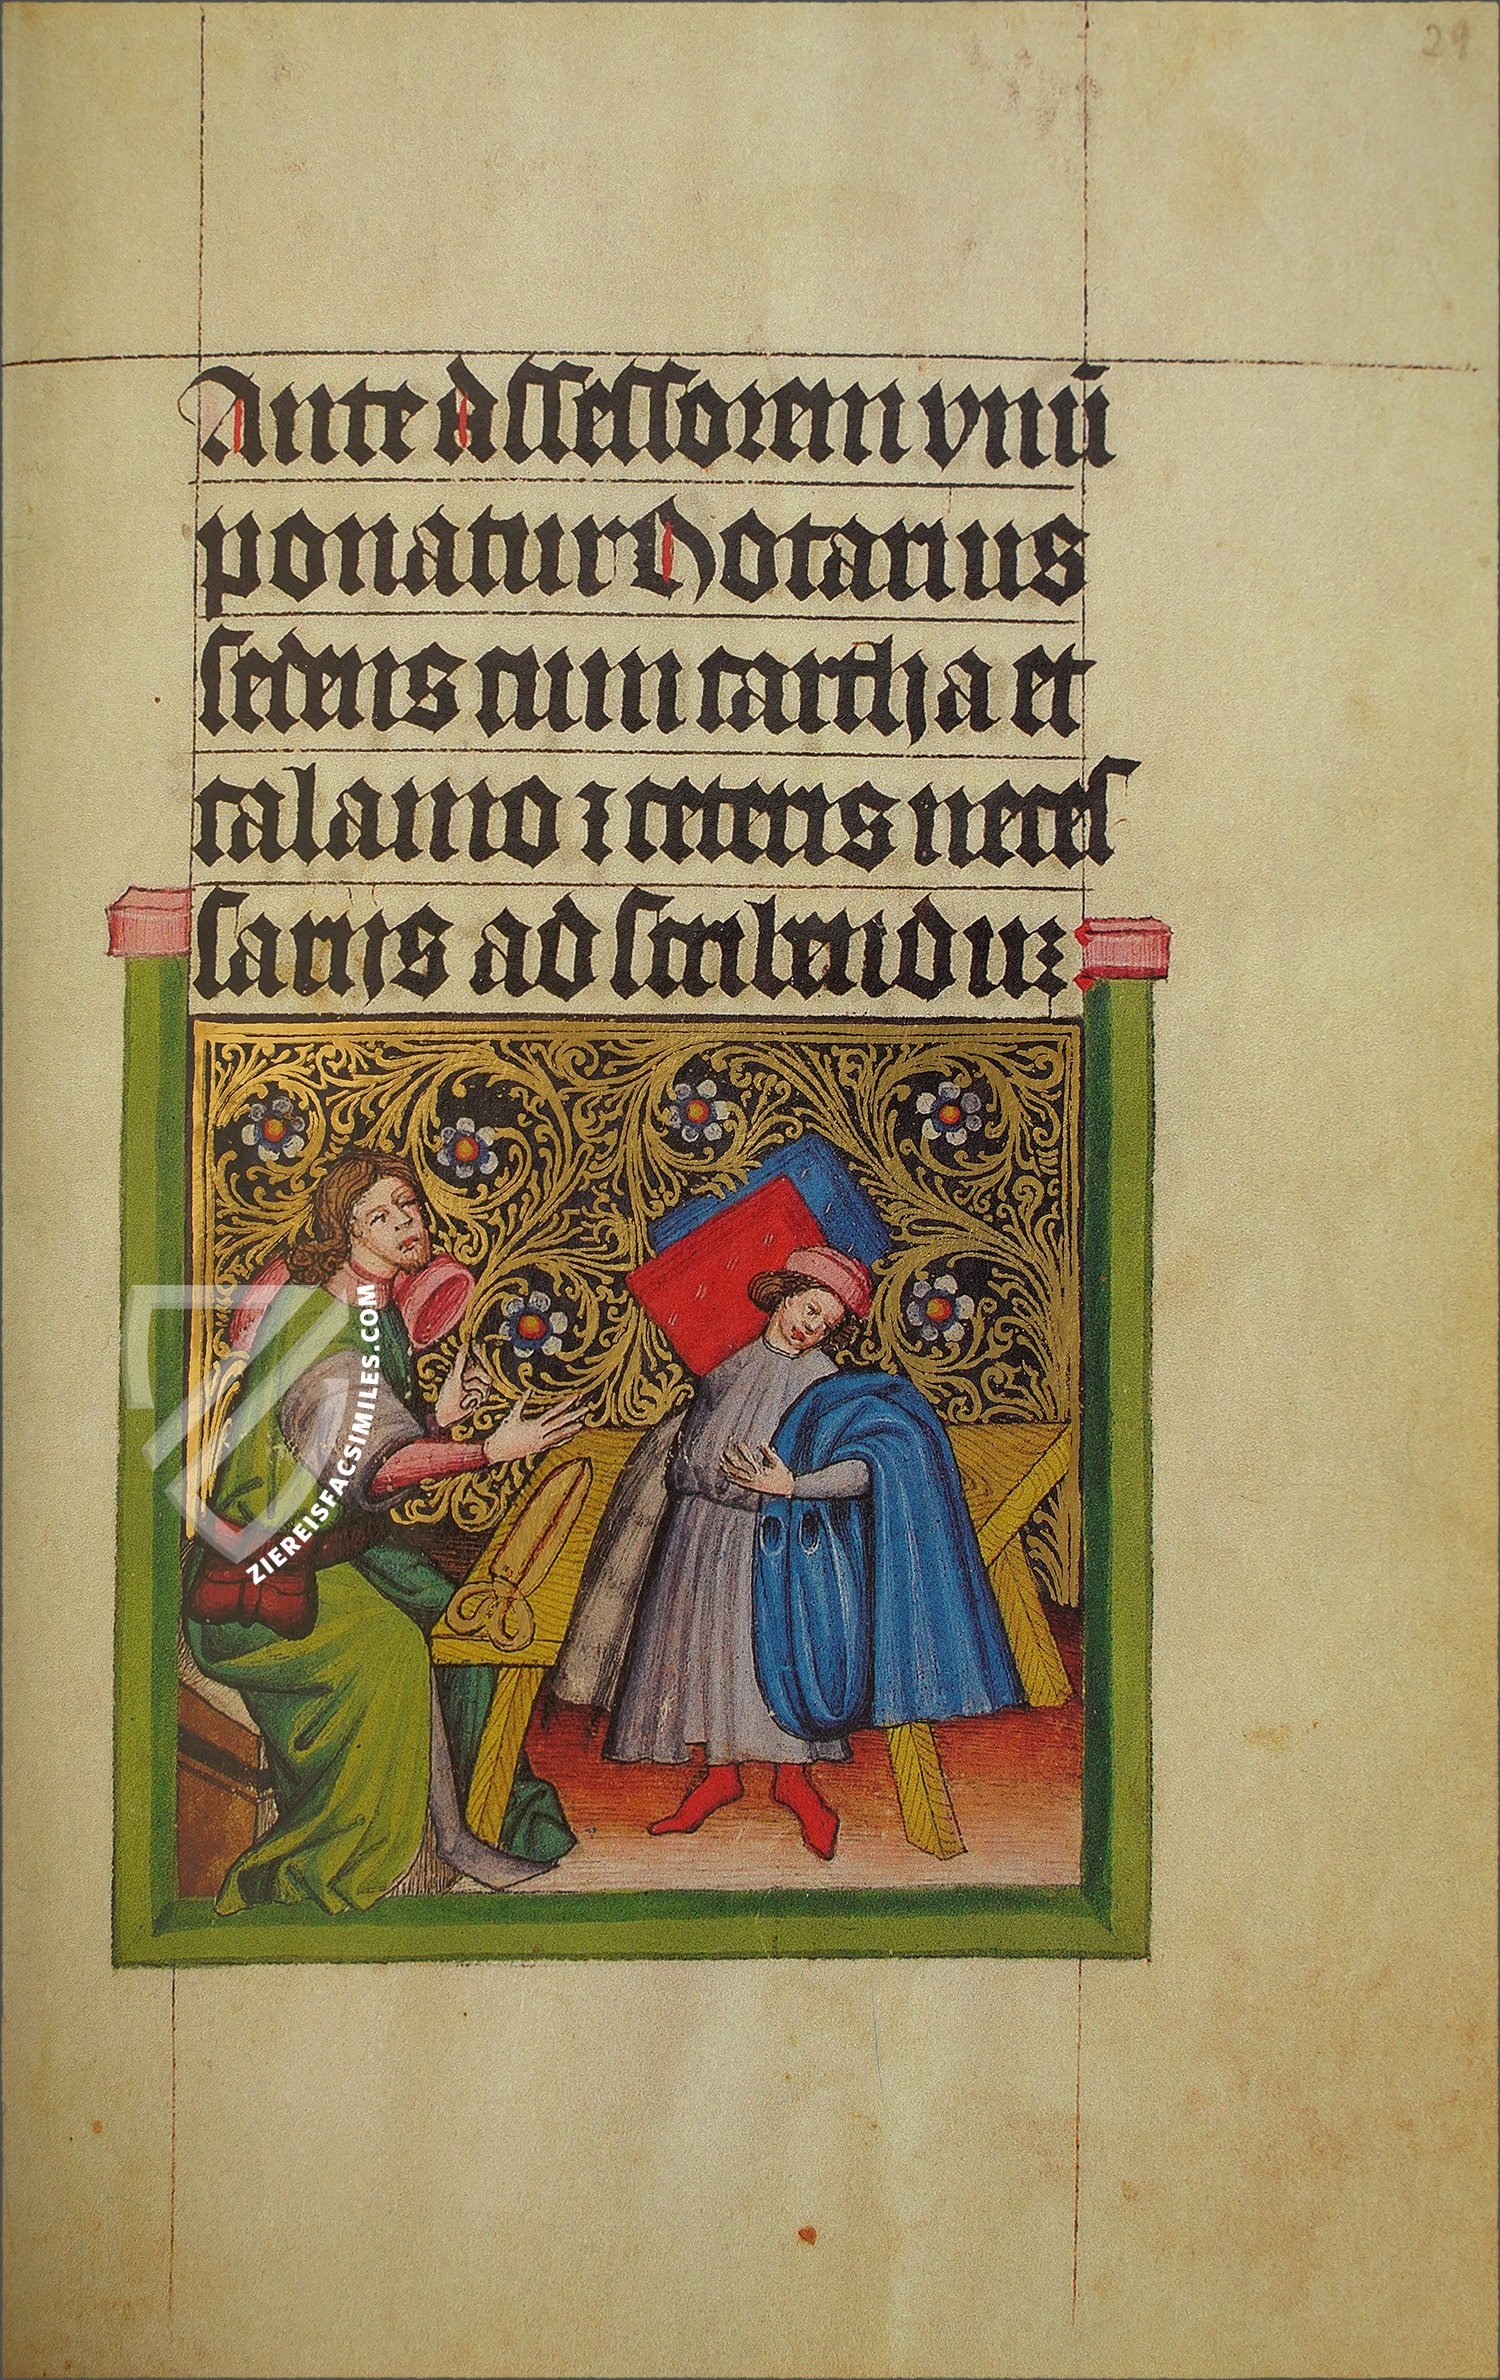 29
Ante Assessorem vnū
ponatur Notarius
sedens cum cartha et
calamo ⁊ ceteris neces
sarijs ad scribendum
ZIEREISFACSIMILES.COM